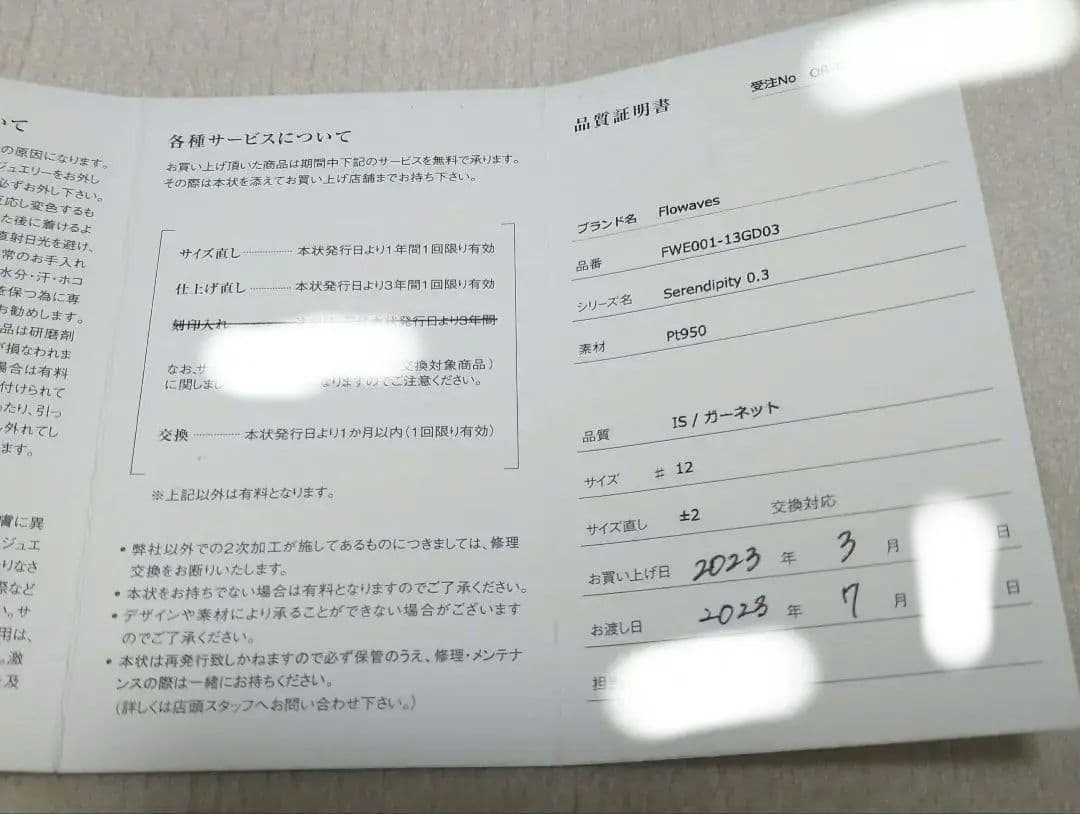 いて
の原因になります。
ジュエリーをお外し
必ずお外し下さい。
反応し変色するも
た後に着けるよ
直射日光を避け、
常のお手入れ
水分・汗・ホコ
を保つ為に専
お勧めします。
品は研磨剤
が損なわれま
場合は有料
付けられて
ったり、引っ
外れてし
ます。
膚に異
ジュエ
りなさ
祭など
い。サ
用は、
。激
及
各種サービスについて
お買い上げ頂いた商品は期間中下記のサービスを無料で承ります。
その際は本状を添えてお買い上げ店舗までお持ち下さい。
サイズ直し 本状発行日より1年間1回限り有効
仕上げ直し 本状発行日より3年間1回限り有効
刻印入れ 本状発行日より3年間
なお、サ 交換対象商品)
に関しま なりますのでご注意ください。
交換 本状発行日より1か月以内(1回限り有効)
※上記以外は有料となります。
• 弊社以外での2次加工が施してあるものにつきましては、修理
交換をお断りいたします。
• 本状をお持ちでない場合は有料となりますのでご了承ください。
• デザインや素材により承ることができない場合がございます
のでご了承ください。
• 本状は再発行致しかねますので必ず保管のうえ、修理・メンテナ
ンスの際は一緒にお持ちください。
(詳しくは店頭スタッフへお問い合わせ下さい。)
受注No
品質証明書
ブランド名 Flowaves
品番 FWE001-13GD03
シリーズ名 Serendipity 0.3
素材 Pt950
品質 IS / ガーネット
サイズ # 12
サイズ直し ±2 交換対応
お買い上げ日 2023 年 3 月 日
お渡し日 2023 年 7 月 日
担